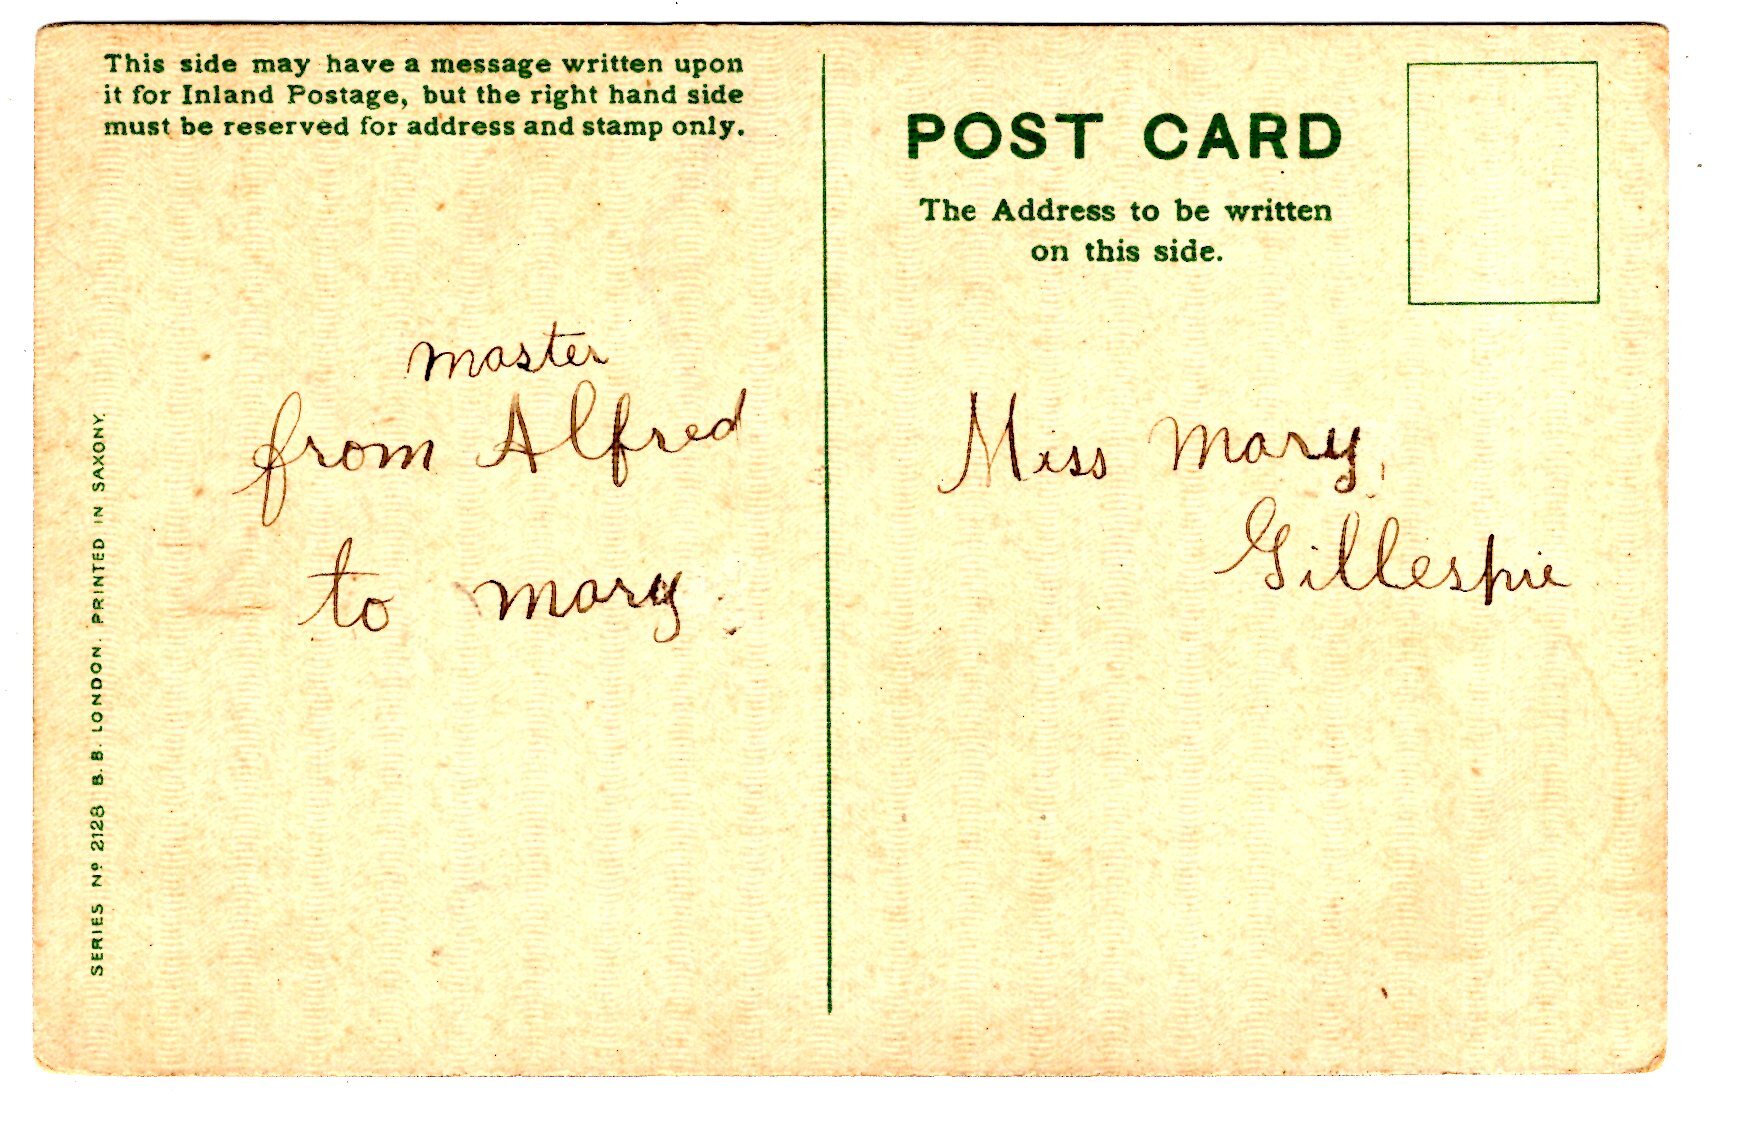 This side may have a message written upon
it for Inland Postage, but the right hand side
must be reserved for address and stamp only.
master
from Alfred
to mary.
SERIES Nº 2128 B.B. LONDON. PRINTED IN SAXONY.
POST CARD
The Address to be written
on this side.
Miss Mary,
Gillespie